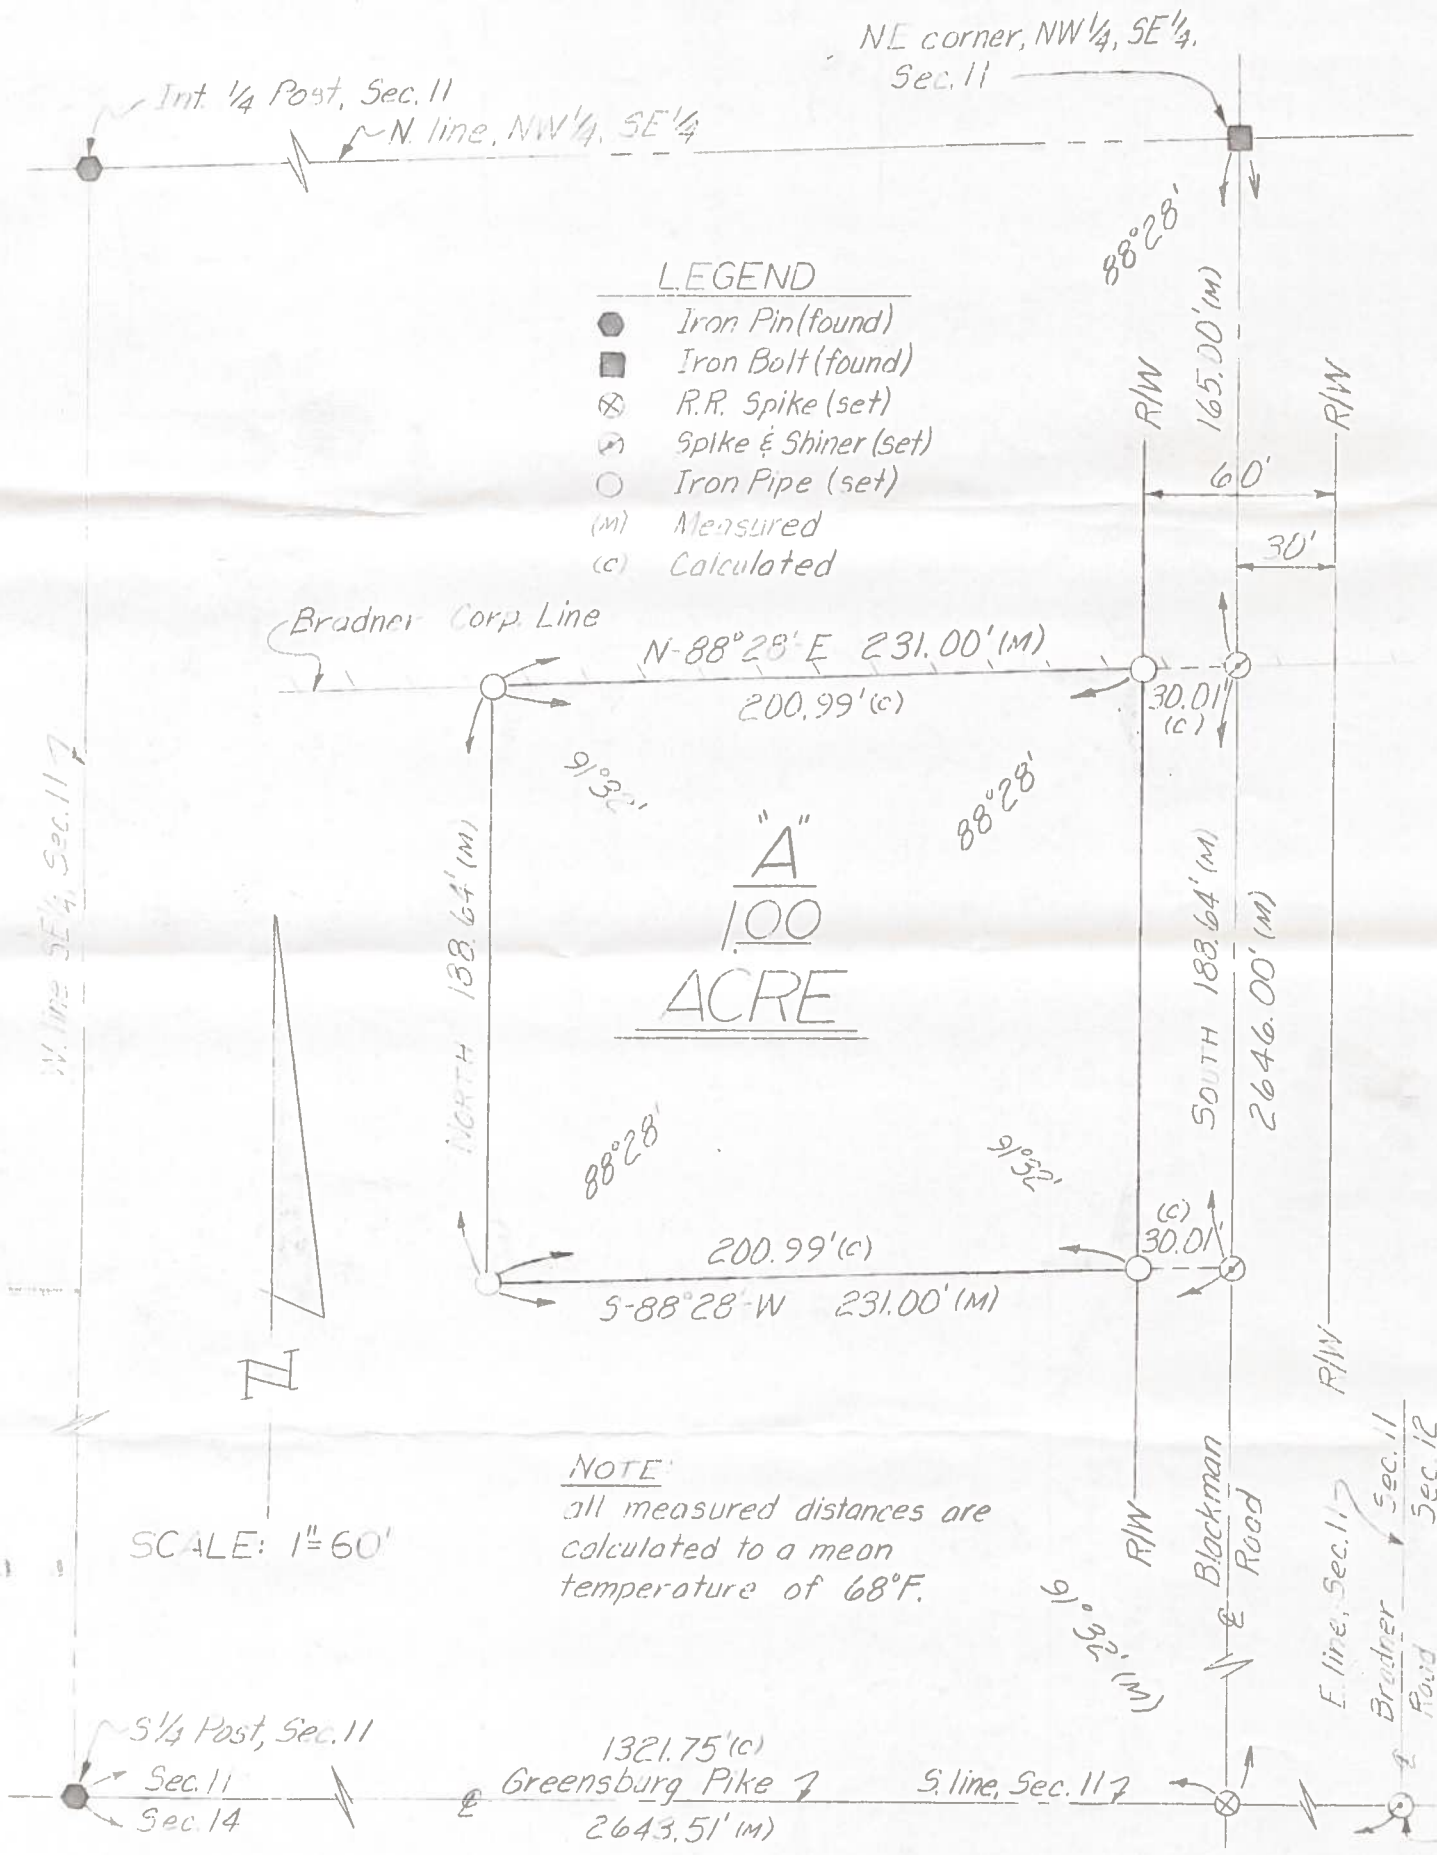 NE corner, NW 1/4, SE 1/4,
Sec. 11
Int. 1/4 Post, Sec. 11
N. line, NW 1/4, SE 1/4
88°28'
165.00' (M)
LEGEND
Iron Pin (found)
Iron Bolt (found)
R.R. Spike (set)
Spike & Shiner (set)
Iron Pipe (set)
(M) Measured
(C) Calculated
R/W
R/W
60'
30'
Bradner Corp. Line
N-88°28'-E 231.00' (M)
200.99' (C)
30.01'
(C)
91°32'
88°28'
W. line SE 1/4, Sec. 11
NORTH 188.64' (M)
"A"
1.00
ACRE
SOUTH 188.64' (M)
2646.00' (M)
88°28'
91°32'
(C)
30.01'
200.99' (C)
S-88°28'-W 231.00' (M)
N
R/W
R/W
SCALE: 1"=60'
NOTE:
all measured distances are
calculated to a mean
temperature of 68°F.
℄ Blackman
Road
E. line, Sec. 11
Sec. 11
Sec. 12
℄ Bradner
Road
91°32' (M)
S 1/4 Post, Sec. 11
Sec. 11
Sec. 14
1321.75' (C)
℄ Greensburg Pike
S. line, Sec. 11
2643.51' (M)